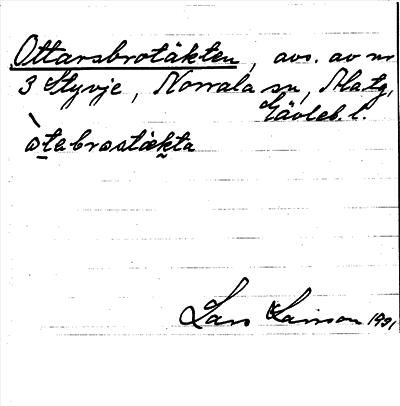 Ottarsbrotäkten, avs. av nr
3 Styvje, Norrala sn, Matg,
Gävleb. l.
òtebrostækta
Lars Larsson 1931